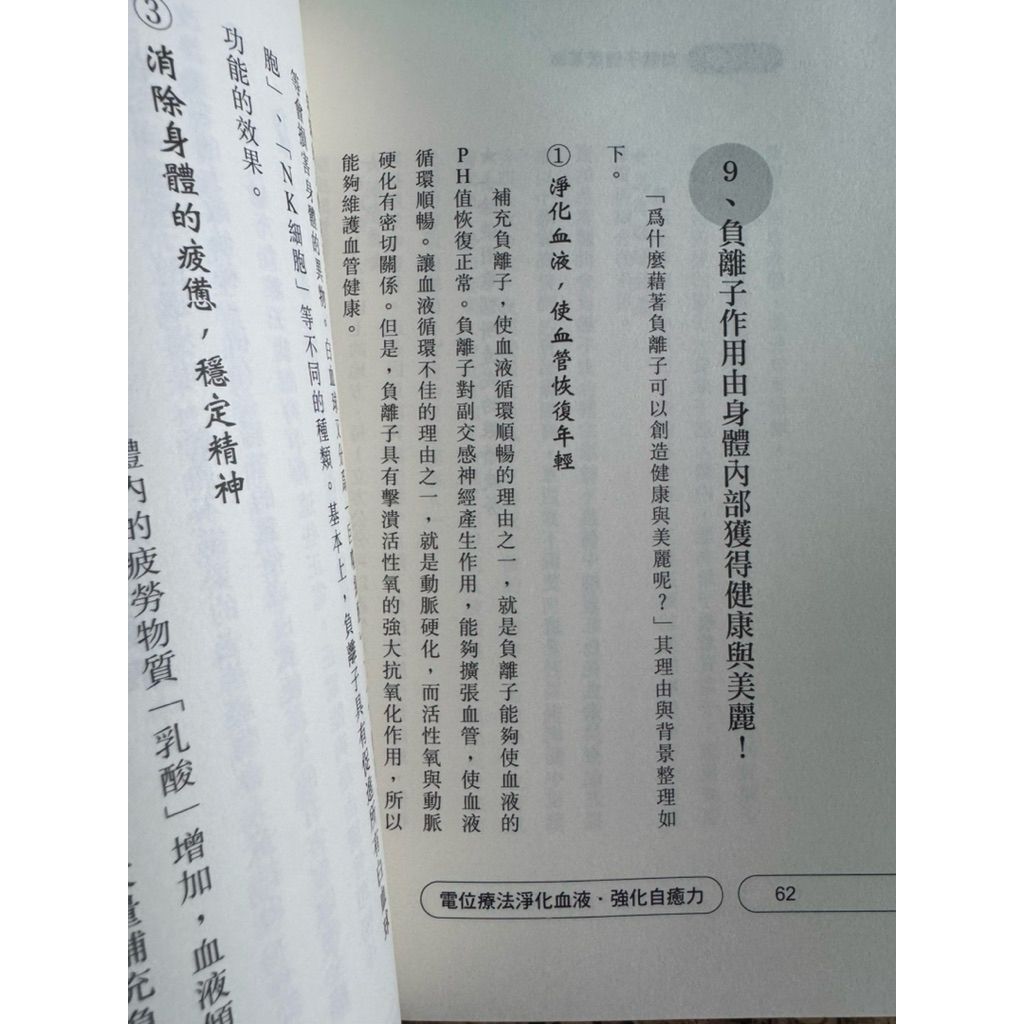 9、負離子作用由身體內部獲得健康與美麗！
「爲什麼藉著負離子可以創造健康與美麗呢？」其理由與背景整理如
下。
①淨化血液，使血管恢復年輕
補充負離子，使血液循環順暢的理由之一，就是負離子能夠使血液的
PH值恢復正常。負離子對副交感神經產生作用，能夠擴張血管，使血液
循環順暢。讓血液循環不佳的理由之一，就是動脈硬化，而活性氧與動脈
硬化有密切關係。但是，負離子具有擊潰活性氧的強大抗氧化作用，所以
能夠維護血管健康。
電位療法淨化血液．強化自癒力
62
等會損害身體的異物。白血球
胞」、「NK細胞」等不同的種類。基本上，負離子具有促進所有白血球
功能的效果。
③消除身體的疲憊，穩定精神
體內的疲勞物質「乳酸」增加，血液傾
量補充負